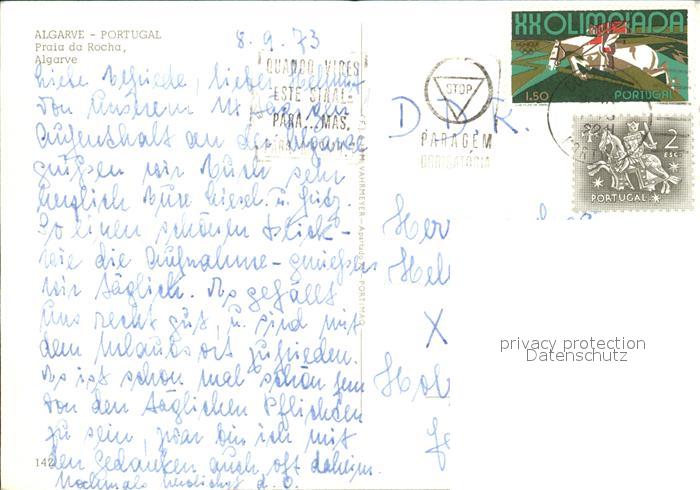 ALGARVE - PORTUGAL
Praia da Rocha,
Algarve
8.9.73
Liebe Elfriede, lieber Hellmut
Von Unserem
Aufenthalt an der Algarve
grüßen wir Euch sehr
herzlich Eure Liesel. u. Fritz.
So einen schönen Blick-
wie die Aufnahme- genießen
wir täglich. Es gefällt
Uns recht gut, u. sind mit
dem Urlaubsort zufrieden.
Es ist schon mal schön fern
von den täglichen Pflichten
zu sein, zwar bin ich mit
den Gedanken auch oft daheim.
Nochmals herzlichst d. O.
142
QUANDO VIRES
ESTE SINAL
PARA... MAS,
STOP
PARAGEM
OBRIGATÓRIA
XX OLIMPIADA
1.50 PORTUGAL
2
ESC.
PORTUGAL
VAHRMEYER - Apartado
PORTIMAO
DDR.
Her
Hel
X
Hol
privacy protection
Datenschutz